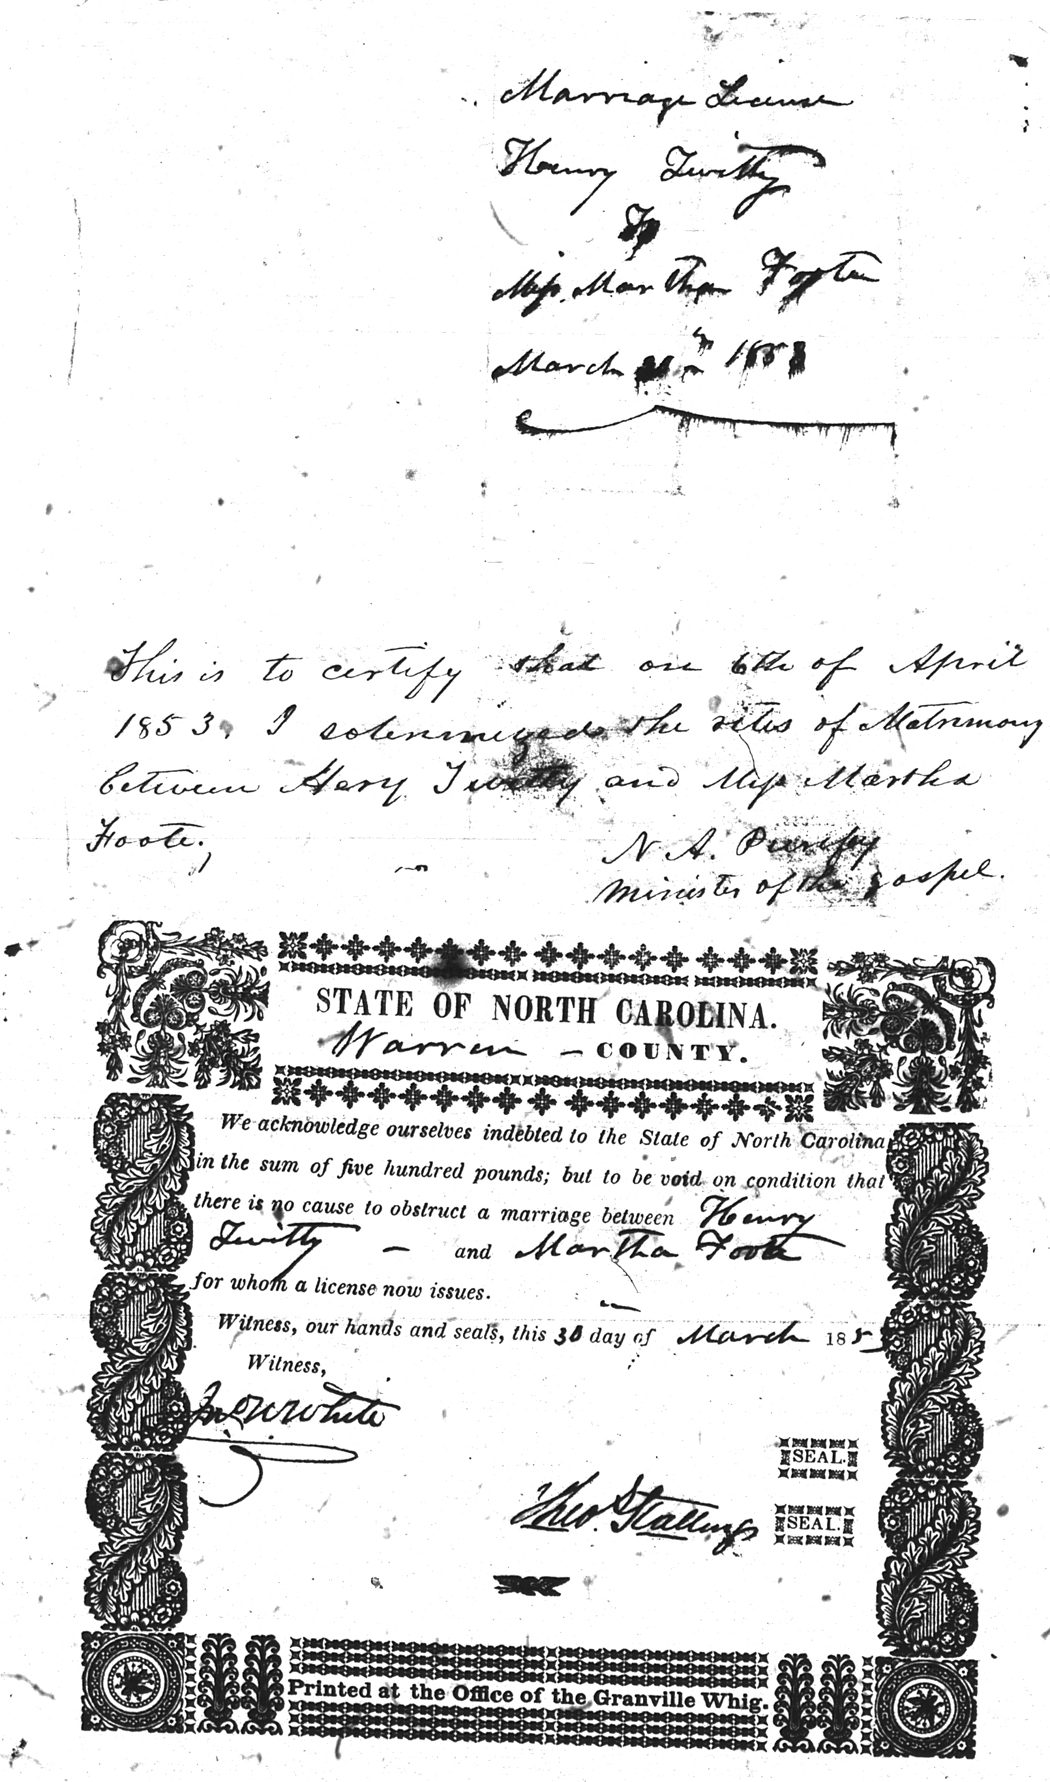 Marriage License
Henry Twitty
To
Miss Martha Foote
March 1853
This is to certify that on 6th of April
1853, I solemnized the rites of Matrimony
between Hery Twitty and Miss Martha
Foote.
N. A. Purefy
Minister of the gospel.
STATE OF NORTH CAROLINA.
Warren - COUNTY.
We acknowledge ourselves indebted to the State of North Carolina
in the sum of five hundred pounds; but to be void on condition that
there is no cause to obstruct a marriage between Henry
Twitty - and Martha Foote
for whom a license now issues.
Witness, our hands and seals, this 30 day of March 1853
Witness,
Jno W White
SEAL.
Theo. Stallings SEAL.
Printed at the Office of the Granville Whig.